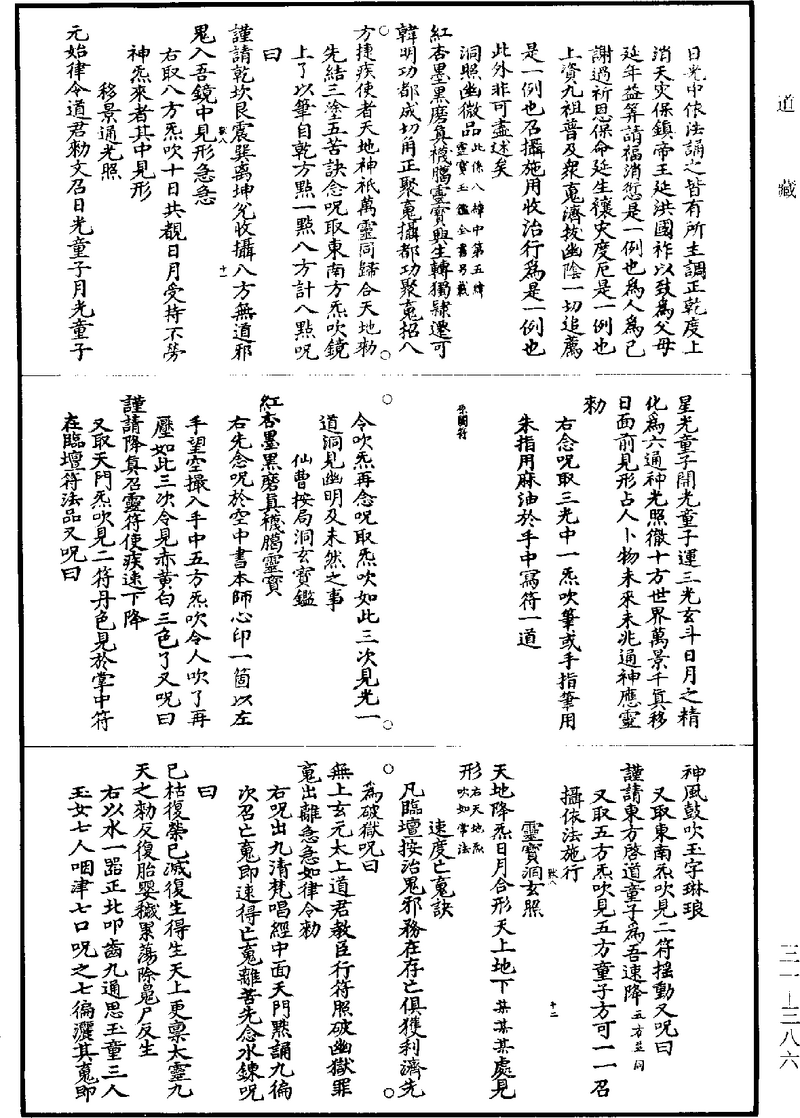 道藏
日光中依法誦之皆有所主調正乾度上
消天災保鎮帝王延洪國祚以致為父母
延年益算請福消愆是一例也為人為己
謝過祈恩保命延生禳災度厄是一例也
上資九祖普及衆䰟濟拔幽陰一切追薦
是一例也召攝施用收治行為是一例也
此外非可盡述矣
洞照幽微品此係八樟中第五樟靈寶玉鑑全書另載
紅杏墨黑磨真襪臈靈寶與生轉獨肄遷可
韓明功都成切角正聚䰟攝都功聚䰟招八
方捷疾使者天地神祇萬靈同歸合天地勑
先結三塗五苦訣念呪取東南方炁吹鏡
上了以筆自乾方點一點八方計八點呪
曰
謹請乾坎艮震巽离坤兊收攝八方無道邪
鬼入吾鏡中見形急急
右取八方炁吹十日共觀日月受持不勞
神炁來者其中見形
移景通光照
元始律令道君勑文召日光童子月光童子
星光童子開光童子運三光玄斗日月之精
化為六通神光照徹十方世界萬景千真移
日面前見形占人卜物未來未兆通神應靈
勑
右念呪取三光中一炁吹筆或手指筆用
朱指用麻油於手中冩符一道
原闕符
令吹炁再念呪取炁吹如此三次見光一
道洞見幽明及未然之事
仙曹按局洞玄寶鑑
紅杏墨黑磨真襪臈靈寶
右先念呪於空中書本師心印一箇以左
手望空撮入手中五方炁吹令人吹了再
壓如此三次令見赤黄白三色了又呪曰
謹請降真召靈符使疾速下降
又取天門炁吹見二符丹色見於掌中符
在臨壇符法品又呪曰
神風鼓吹玉字琳琅
又取東南炁吹見二符揺動又呪曰
謹請東方啓道童子為吾速降五方並同
又取五方炁吹見五方童子方可一一召
攝依法施行
靈寶洞玄照
天地降炁日月合形天上地下某某某處見
形右天地炁吹如常法
速度亡䰟訣
凡臨壇按治鬼邪務在存亡俱獲利濟先
為破獄呪曰
無上玄元太上道君教臣行符照破幽獄罪
䰟出離急急如律令勑
右呪出九清梵唱經中面天門黙誦九徧
次召亡䰟即速得亡䰟離苦先念水鍊呪
曰
已枯復榮已滅復生得生天上更禀太靈九
天之勑反復胎嬰穢累蕩除鬼尸反生
右以水一器正北叩齒九通思玉童三人
玉女七人咽津七口呪之七徧灑其䰟即
三一—三八六